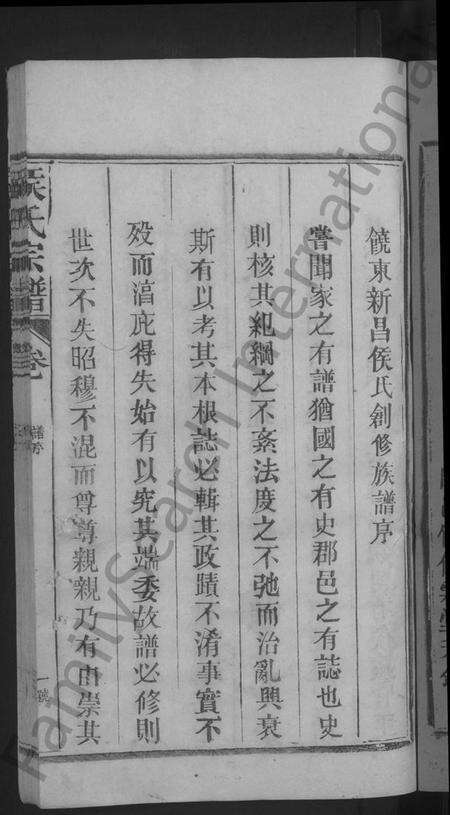 饒東新昌侯氏創修族譜序
嘗聞家之有譜猶國之有史郡邑之有誌也史
則核其紀綱之不紊法度之不弛而治亂興衰
斯有以考其本根誌必輯其政蹟不淆事實不
歿而滀庇得失始有以究其端委故譜必修則
世次不失昭穆不混而尊尊親親乃有由崇其
侯氏宗譜
卷
譜序
一
FamilySearch International